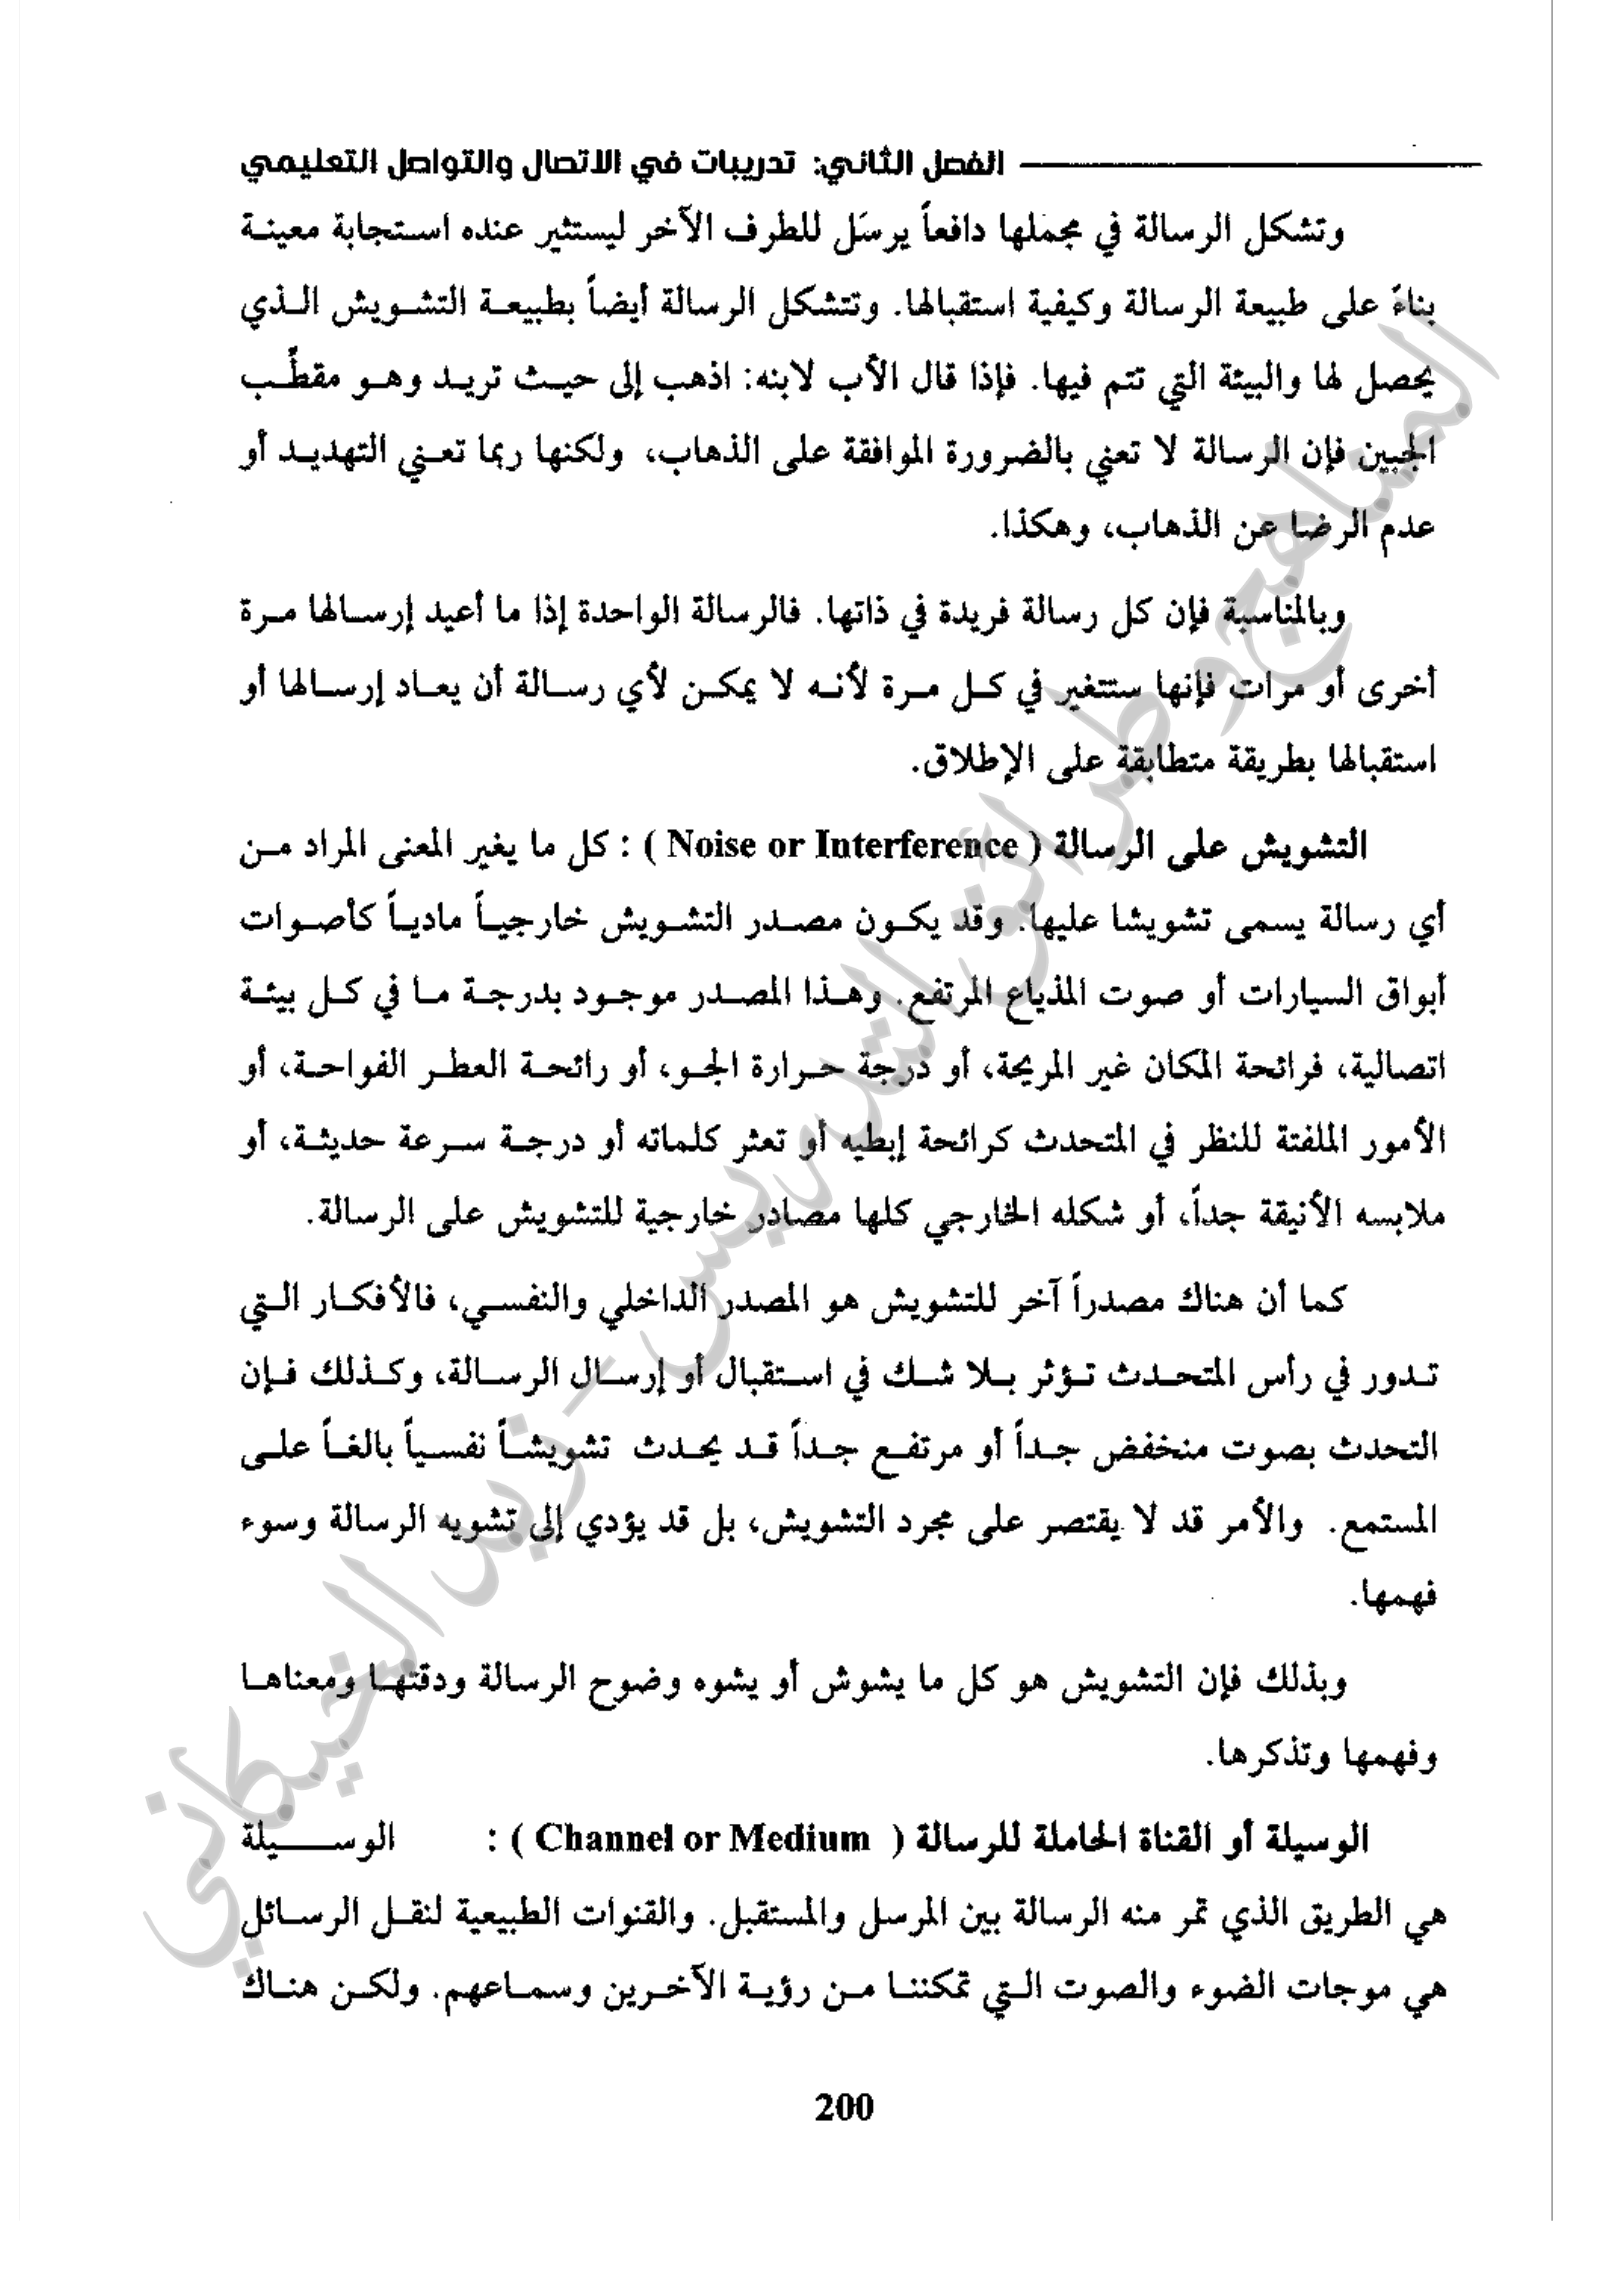 الفصل الثاني: تدريبات في الاتصال والتواصل التعليمي
وتشكل الرسالة في مجملها دافعاً يرسَل للطرف الآخر ليستثير عنده استجابة معينة
بناءً على طبيعة الرسالة وكيفية استقبالها. وتتشكل الرسالة أيضاً بطبيعة التشويش الذي
يحصل لها والبيئة التي تتم فيها. فإذا قال الأب لابنه: اذهب إلى حيث تريد وهو مقطِّب
الجبين فإن الرسالة لا تعني بالضرورة الموافقة على الذهاب، ولكنها ربما تعني التهديد أو
عدم الرضا عن الذهاب، وهكذا.
وبالمناسبة فإن كل رسالة فريدة في ذاتها. فالرسالة الواحدة إذا ما أعيد إرسالها مرة
أخرى أو مرات فإنها ستتغير في كل مرة لأنه لا يمكن لأي رسالة أن يعاد إرسالها أو
استقبالها بطريقة متطابقة على الإطلاق.
التشويش على الرسالة ( Noise or Interference ) : كل ما يغير المعنى المراد من
أي رسالة يسمى تشويشا عليها. وقد يكون مصدر التشويش خارجياً مادياً كأصوات
أبواق السيارات أو صوت المذياع المرتفع. وهذا المصدر موجود بدرجة ما في كل بيئة
اتصالية، فرائحة المكان غير المريحة، أو درجة حرارة الجو، أو رائحة العطر الفواحة، أو
الأمور الملفتة للنظر في المتحدث كرائحة إبطيه أو تعثر كلماته أو درجة سرعة حديثة، أو
ملابسه الأنيقة جداً، أو شكله الخارجي كلها مصادر خارجية للتشويش على الرسالة.
كما أن هناك مصدراً آخر للتشويش هو المصدر الداخلي والنفسي، فالأفكار التي
تدور في رأس المتحدث تؤثر بلا شك في استقبال أو إرسال الرسالة، وكذلك فإن
التحدث بصوت منخفض جداً أو مرتفع جداً قد يحدث تشويشاً نفسياً بالغاً على
المستمع. والأمر قد لا يقتصر على مجرد التشويش، بل قد يؤدي إلى تشويه الرسالة وسوء
فهمها.
وبذلك فإن التشويش هو كل ما يشوش أو يشوه وضوح الرسالة ودقتها ومعناها
وفهمها وتذكرها.
الوسيلة أو القناة الحاملة للرسالة ( Channel or Medium ) : الوسيلة
هي الطريق الذي تمر منه الرسالة بين المرسل والمستقبل. والقنوات الطبيعية لنقل الرسائل
هي موجات الضوء والصوت التي تمكننا من رؤية الآخرين وسماعهم. ولكن هناك
200
المناهج وطرائق التدريس - زيد الخيكاني